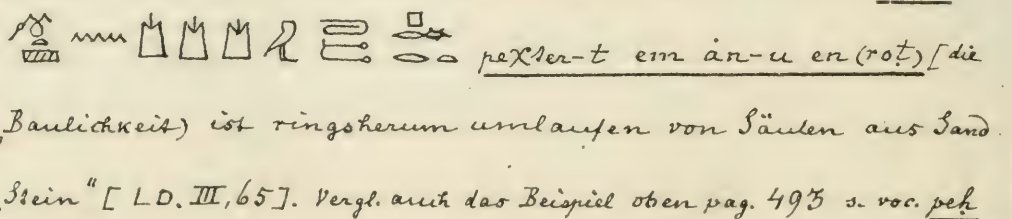 peχser-t em ȧn-u en (roṭ) [die
Baulichkeit) ist ringsherum umlaufen von Säulen aus Sand
Stein" [LD. III, 65]. Vergl. auch das Beispiel oben pag. 493 s. voc. peh